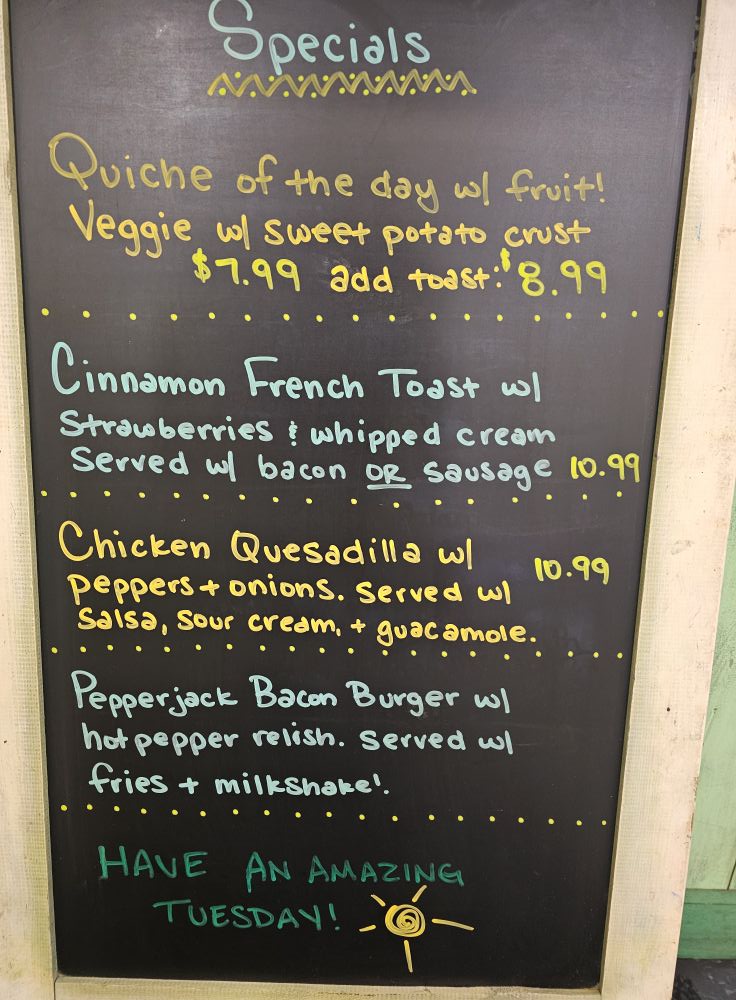 Specials
Quiche of the day w/ fruit!
Veggie w/ sweet potato crust
$7.99 add toast: $8.99
Cinnamon French Toast w/
Strawberries & whipped cream
Served w/ bacon OR sausage 10.99
Chicken Quesadilla w/ 10.99
peppers + onions. Served w/
Salsa, Sour cream, + guacamole.
Pepperjack Bacon Burger w/
hot pepper relish. Served w/
fries + milkshake!
HAVE AN AMAZING
TUESDAY!